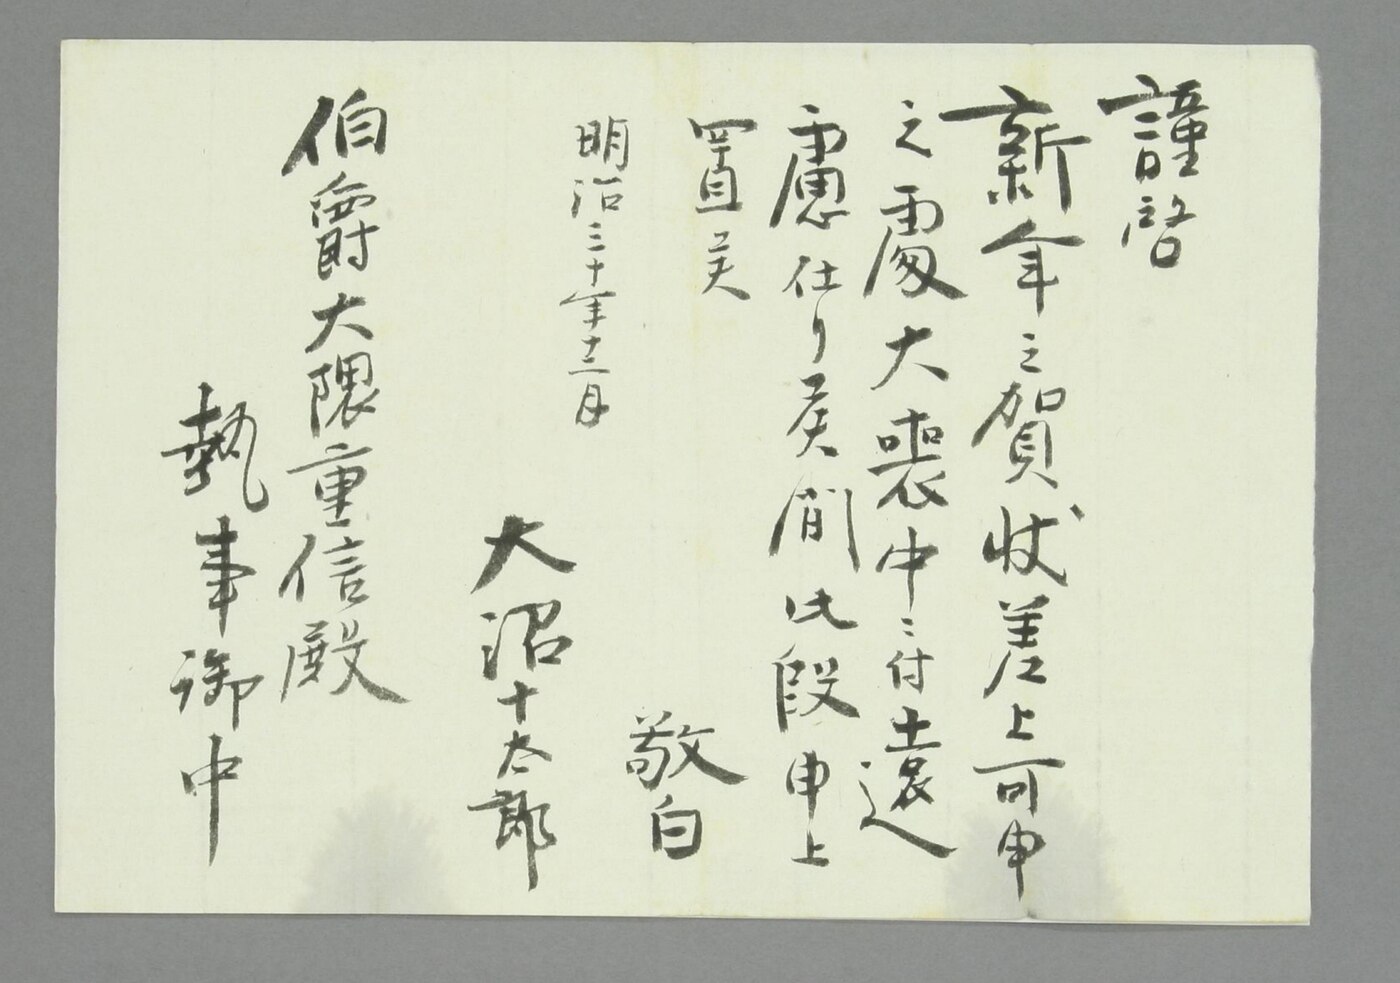 謹啓
新年之賀状差上可申
之處大喪中ニ付遠
慮仕り候間此段申上
置候
敬白
明治三十年十二月
大沼十太郎
伯爵大隈重信殿
執事御中